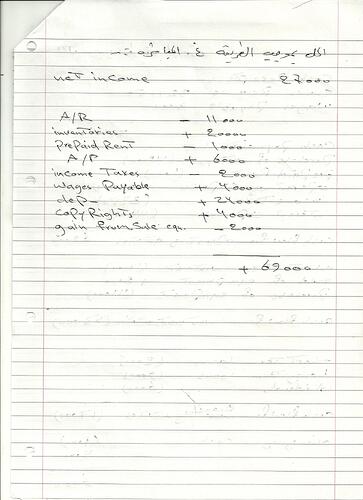 الحل بموجب الطريقة غ. المباشرة
net income 27000
A/R - 11000
inventories + 20000
PrePaid Rent - 1000
A/P + 6000
income Taxes - 2000
wages Payable + 4000
dep - + 24000
CopyRights + 4000
gain from Sale eq. - 2000
+ 69000